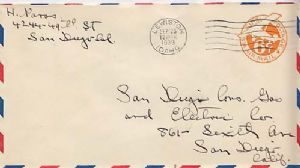 H. Paros
4244-49th St
San Diego Cal.
LEWISTON
IDAHO
1939
AIR MAIL
6¢
San Diego Cons. Gas
and Electric Co
861- Sixth Ave
San Diego
Calif.